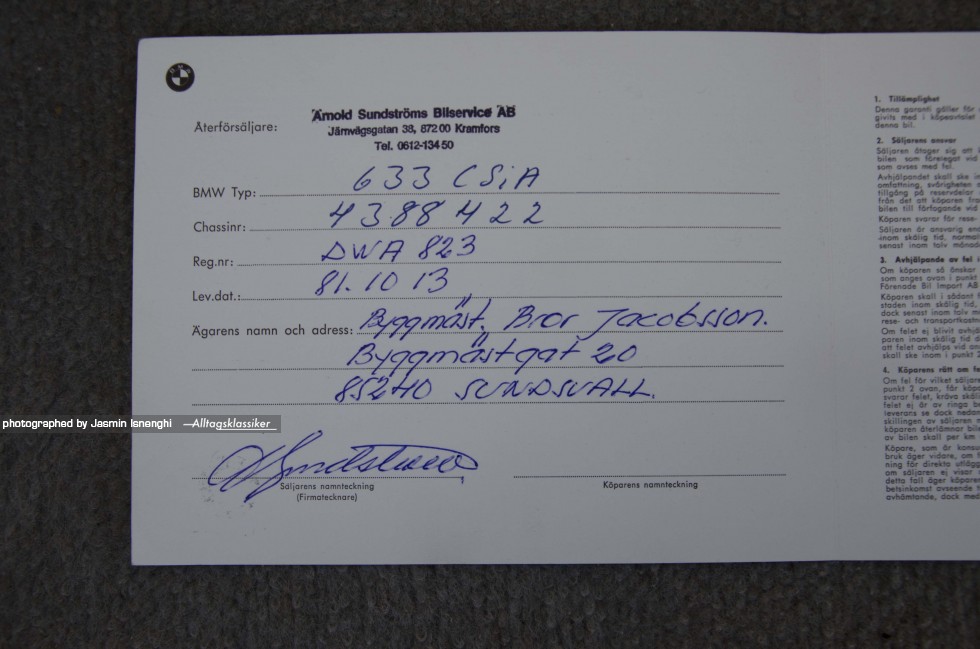 BMW
Återförsäljare:
Arnold Sundströms Bilservice AB
Järnvägsgatan 38, 872 00 Kramfors
Tel. 0612-134 50
BMW Typ: 633 CSiA
Chassinr: 4388422
Reg.nr: DWA 823
Lev.dat.: 81.10 13
Ägarens namn och adress: Byggmäst. Bror Jacobsson.
Byggmästgat 20
85240 SUNDSVALL.
Säljarens namnteckning
(Firmatecknare)
Köparens namnteckning
photographed by Jasmin Isnenghi —Alltagsklassiker
1. Tillämplighet
Denna garanti gäller för
givits med i köpeavtalet
denna bil.
2. Säljarens ansvar
Säljaren åtager sig att
bilen som förelegat vid
som avses med fel.
Avhjälpandet skall ske
omfattning, svårigheten
tillgång på reservdelar
från det att köparen
bilen till förfogande vid
Köparen svarar för rese-
Säljaren är ansvarig
inom skälig tid,
senast inom tolv
3. Avhjälpande av fel
Om köparen så önskar
som anges ovan i punkt
Förenade Bil Import AB
Köparen skall i sådant
staden inom skälig tid,
dock senast inom tolv
rese- och
Om felet ej blivit
paren inom skälig tid
att felet avhjälps vid
skall ske inom i punkt
4. Köparens rätt om
Om fel för vilket
punkt 2 ovan, får
svarar felet, kräva
felet ej är av ringa
leverans se dock
skillingen av säljaren
köparen återlämnar
av bilen skall per km
Köpare, som är
bruk äger vidare, om
ning för direkta
om säljaren ej visar
detta fall äger
betsinkomst avseende
avhämtande, dock med